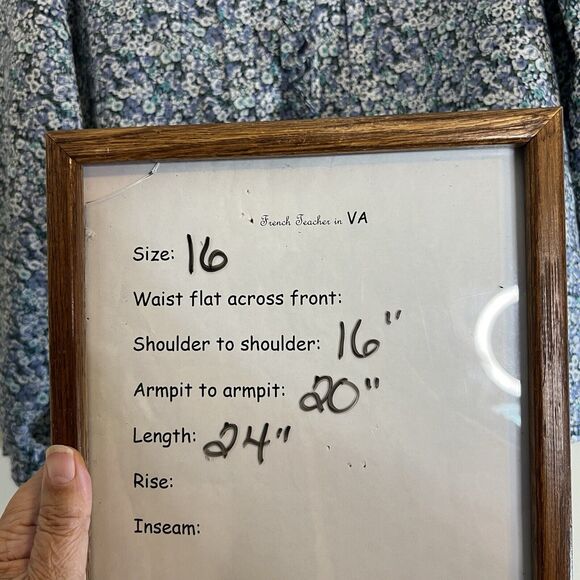 French Teacher in VA
Size: 16
Waist flat across front:
Shoulder to shoulder: 16"
Armpit to armpit: 20"
Length: 24"
Rise:
Inseam: